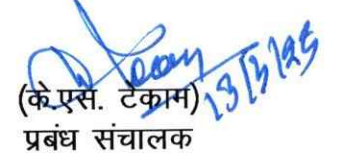 13/5/25
(के.एस. टेकाम)
प्रबंध संचालक